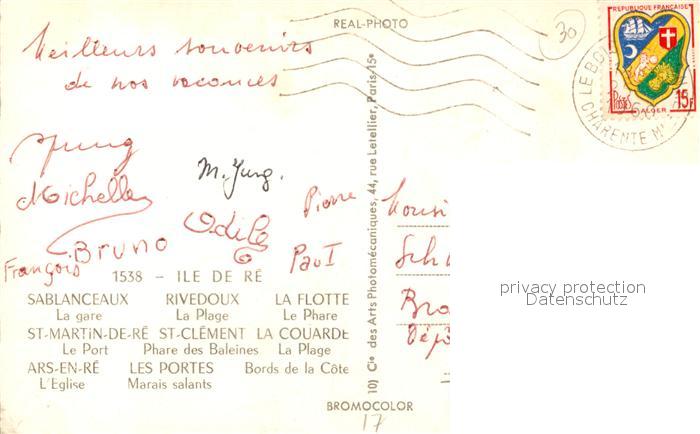 REAL-PHOTO
30
REPUBLIQUE FRANÇAISE
POSTES
ALGER
15F
LE BO
CHARENTE Mme
Meilleurs souvenirs
de nos vacances
Jung
Michelle
M. Jung.
Odile
Pierre
Bruno
François
Paul
Monsi
Sch
Bro
Dépô
1538 - ILE DE RÉ
SABLANCEAUX RIVEDOUX LA FLOTTE
La gare La Plage Le Phare
ST-MARTIN-DE-RÉ ST-CLÉMENT LA COUARDE
Le Port Phare des Baleines La Plage
ARS-EN-RÉ LES PORTES Bords de la Côte
L'Eglise Marais salants
10) Cie des Arts Photomécaniques, 44, rue Letellier, Paris-15e
BROMOCOLOR
17
privacy protection
Datenschutz